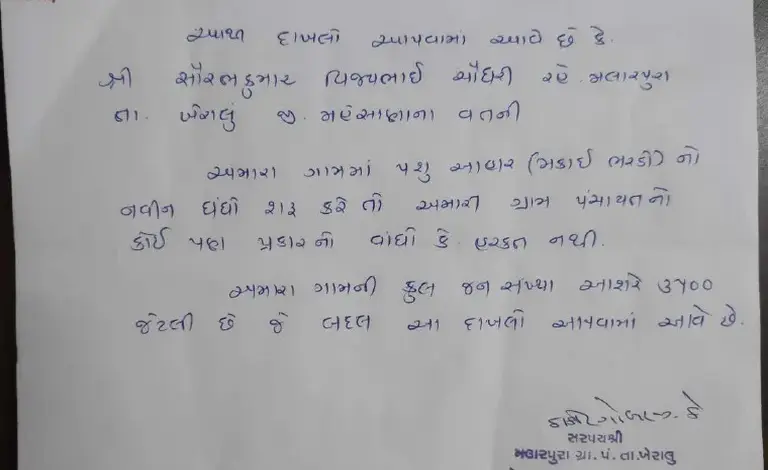 આથી દાખલો આપવામાં આવે છે કે.
શ્રી સૌરભકુમાર વિજયભાઈ ચૌધરી રહે. મલારપુરા
તા. ખેરાલું જી. મહેસાણાના વતની
અમારા ગામમાં પશુ આહાર (મકાઈ ભરડો) નો
નવીન ધંધો શરૂ કરે તો અમારી ગ્રામ પંચાયતનો
કોઈ પણ પ્રકારનો વાંધો કે. હરકત નથી.
અમારા ગામની કુલ જન સંખ્યા આશરે ૩૫૦૦
જેટલી છે જે બદલ આ દાખલો આપવામાં આવે છે.
સરપંચશ્રી
મલારપુરા ગ્રા. પં. તા. ખેરાલુ